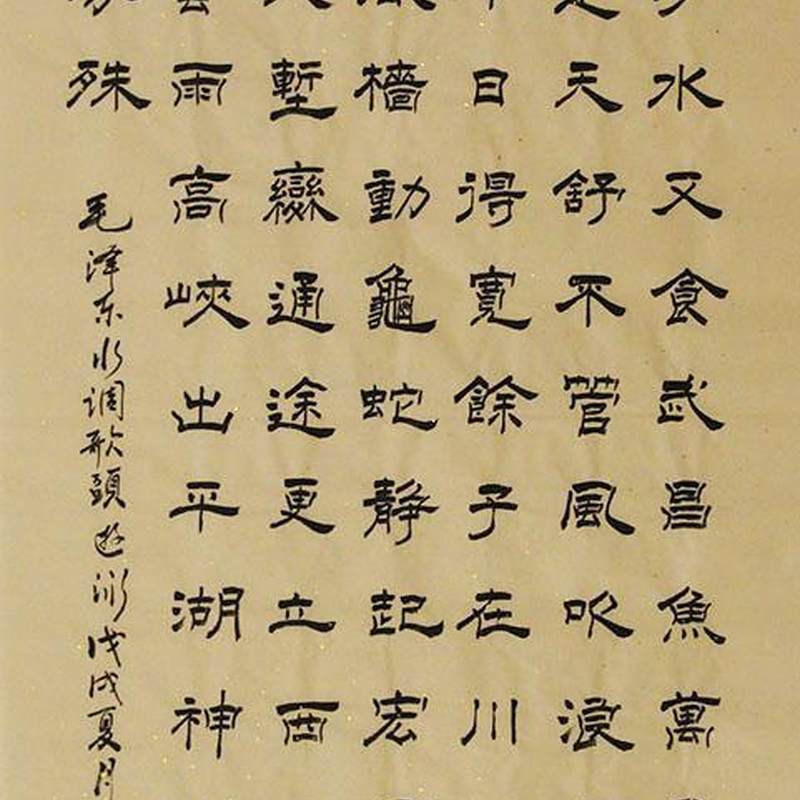 水又食武昌魚萬
天舒不管風吹浪
日得寬餘子在川
檣動龜蛇靜起宏
塹變通途更立西
雨高峽出平湖神
殊
毛泽东水调歌頭遊泳戊戌夏月